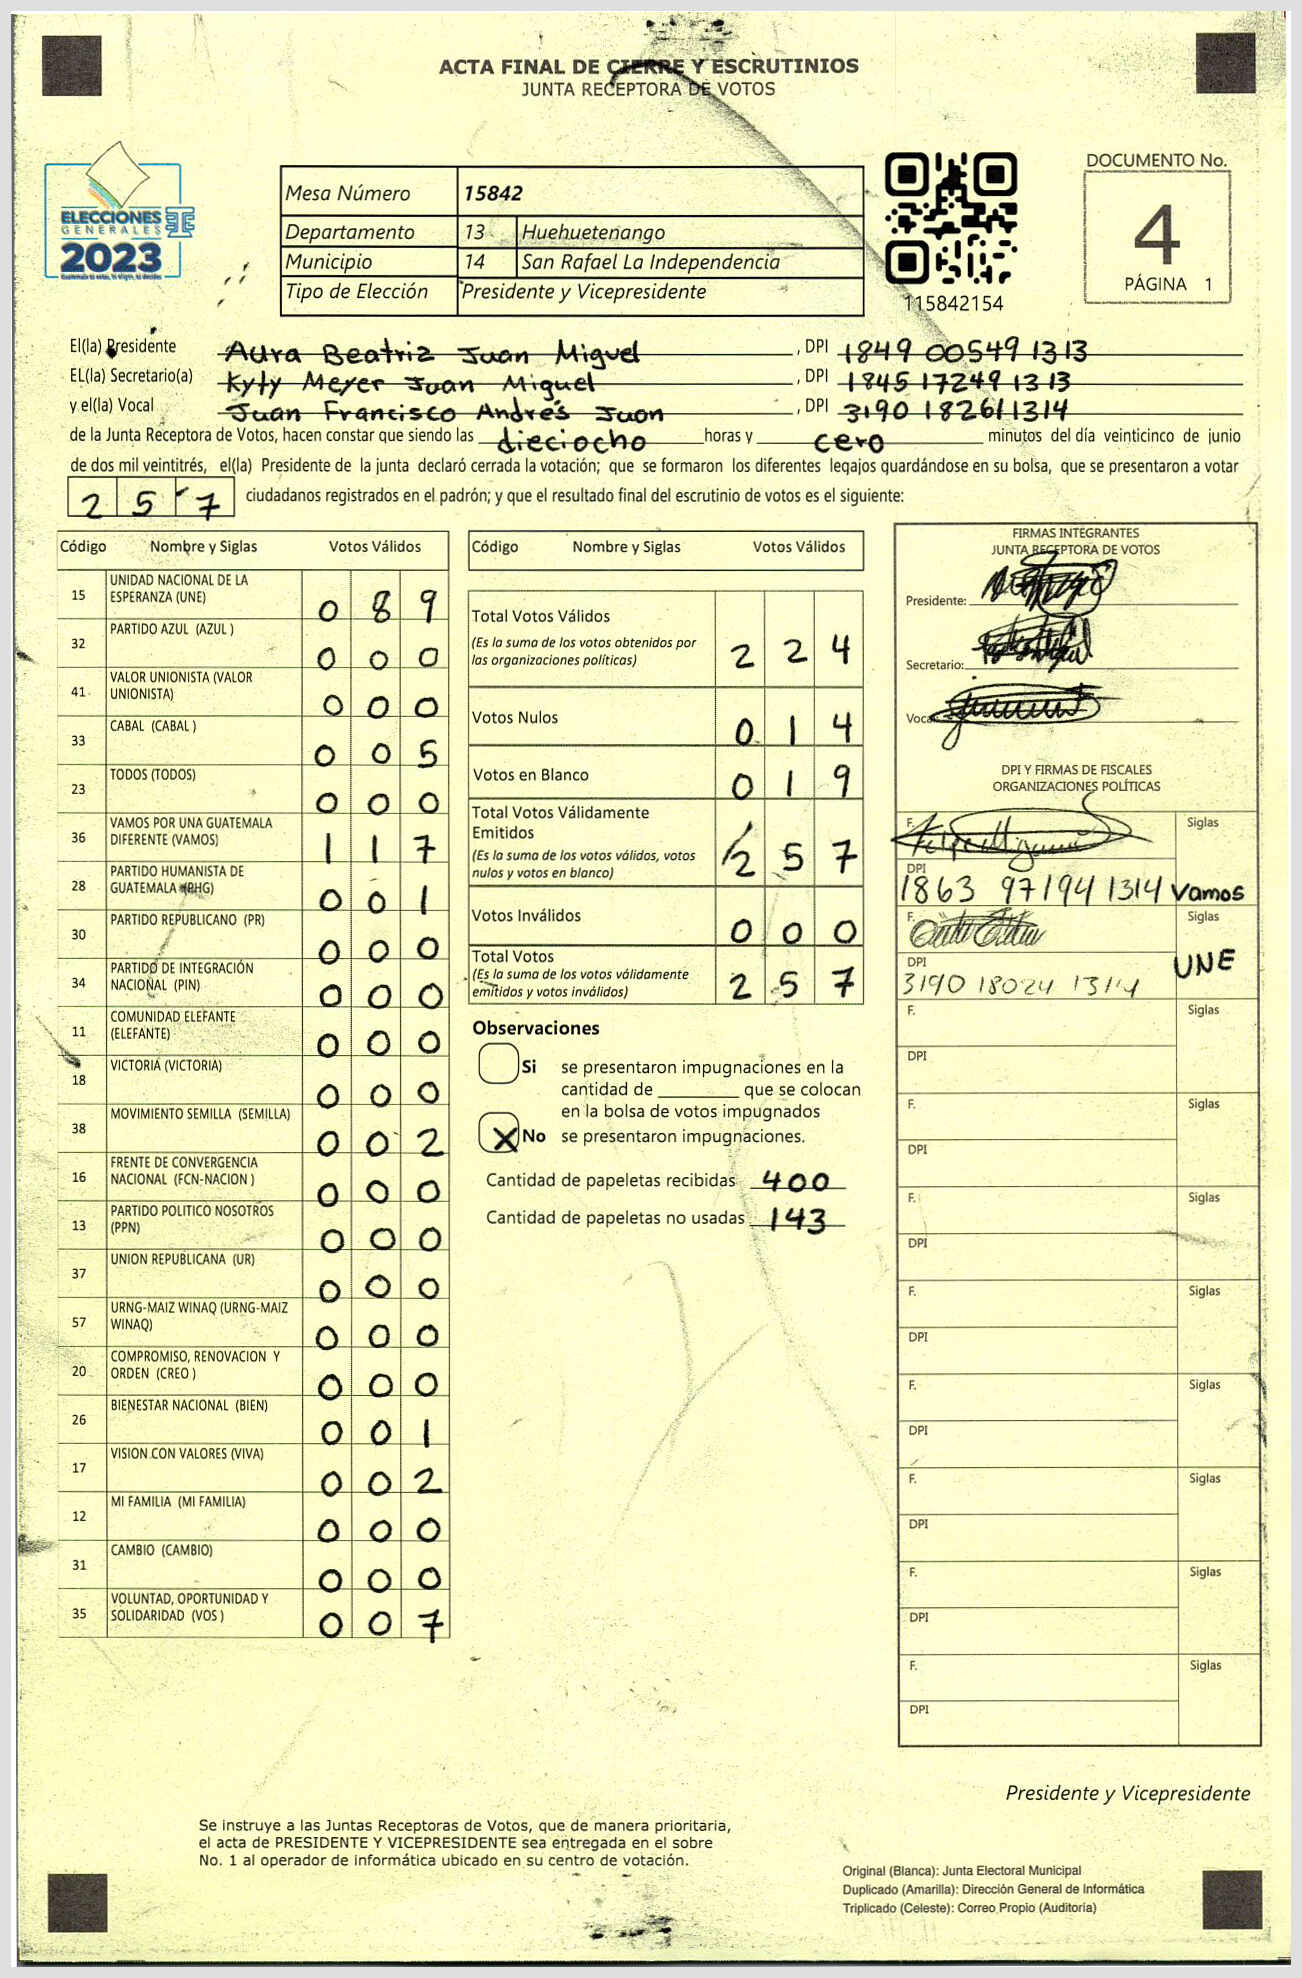 ACTA FINAL DE CIERRE Y ESCRUTINIOS
JUNTA RECEPTORA DE VOTOS
ELECCIONES
GENERALES
2023
Mesa Número 15842
Departamento 13 Huehuetenango
Municipio 14 San Rafael La Independencia
Tipo de Elección Presidente y Vicepresidente
115842154
DOCUMENTO No.
4
PÁGINA 1
El(la) Presidente Aura Beatriz Juan Miguel , DPI 1849 00549 1313
EL(la) Secretario(a) Kyly Meyer Juan Miguel , DPI 1845 17249 1313
y el(la) Vocal Juan Francisco Andrés Juan , DPI 3190 18261 1314
de la Junta Receptora de Votos, hacen constar que siendo las dieciocho horas y cero minutos del día veinticinco de junio
de dos mil veintitrés, el(la) Presidente de la junta declaró cerrada la votación; que se formaron los diferentes legajos guardándose en su bolsa, que se presentaron a votar
2 5 7 ciudadanos registrados en el padrón; y que el resultado final del escrutinio de votos es el siguiente:
Código Nombre y Siglas Votos Válidos
15 UNIDAD NACIONAL DE LA
ESPERANZA (UNE) 0 8 9
32 PARTIDO AZUL (AZUL ) 0 0 0
41 VALOR UNIONISTA (VALOR
UNIONISTA) 0 0 0
33 CABAL (CABAL ) 0 0 5
23 TODOS (TODOS) 0 0 0
36 VAMOS POR UNA GUATEMALA
DIFERENTE (VAMOS) 1 1 7
28 PARTIDO HUMANISTA DE
GUATEMALA (PHG) 0 0 1
30 PARTIDO REPUBLICANO (PR) 0 0 0
34 PARTIDO DE INTEGRACIÓN
NACIONAL (PIN) 0 0 0
11 COMUNIDAD ELEFANTE
(ELEFANTE) 0 0 0
18 VICTORIA (VICTORIA) 0 0 0
38 MOVIMIENTO SEMILLA (SEMILLA) 0 0 2
16 FRENTE DE CONVERGENCIA
NACIONAL (FCN-NACION ) 0 0 0
13 PARTIDO POLITICO NOSOTROS
(PPN) 0 0 0
37 UNION REPUBLICANA (UR) 0 0 0
57 URNG-MAIZ WINAQ (URNG-MAIZ
WINAQ) 0 0 0
20 COMPROMISO, RENOVACION Y
ORDEN (CREO ) 0 0 0
26 BIENESTAR NACIONAL (BIEN) 0 0 1
17 VISION CON VALORES (VIVA) 0 0 2
12 MI FAMILIA (MI FAMILIA) 0 0 0
31 CAMBIO (CAMBIO) 0 0 0
35 VOLUNTAD, OPORTUNIDAD Y
SOLIDARIDAD (VOS ) 0 0 7
Código Nombre y Siglas Votos Válidos
Total Votos Válidos
(Es la suma de los votos obtenidos por
las organizaciones políticas) 2 2 4
Votos Nulos 0 1 4
Votos en Blanco 0 1 9
Total Votos Válidamente
Emitidos
(Es la suma de los votos válidos, votos
nulos y votos en blanco) 2 5 7
Votos Inválidos 0 0 0
Total Votos
(Es la suma de los votos válidamente
emitidos y votos inválidos) 2 5 7
Observaciones
Si se presentaron impugnaciones en la
cantidad de ________ que se colocan
en la bolsa de votos impugnados
X No se presentaron impugnaciones.
Cantidad de papeletas recibidas 400
Cantidad de papeletas no usadas 143
FIRMAS INTEGRANTES
JUNTA RECEPTORA DE VOTOS
Presidente:
Secretario:
Vocal
DPI Y FIRMAS DE FISCALES
ORGANIZACIONES POLÍTICAS
F. Siglas
DPI
1863 97194 1314 Vamos
F. Siglas
DPI UNE
3190 18024 1314
F. Siglas
DPI
F. Siglas
DPI
F. Siglas
DPI
F. Siglas
DPI
F. Siglas
DPI
F. Siglas
DPI
F. Siglas
DPI
F. Siglas
DPI
Presidente y Vicepresidente
Se instruye a las Juntas Receptoras de Votos, que de manera prioritaria,
el acta de PRESIDENTE Y VICEPRESIDENTE sea entregada en el sobre
No. 1 al operador de informática ubicado en su centro de votación.
Original (Blanca): Junta Electoral Municipal
Duplicado (Amarilla): Dirección General de Informática
Triplicado (Celeste): Correo Propio (Auditoria)